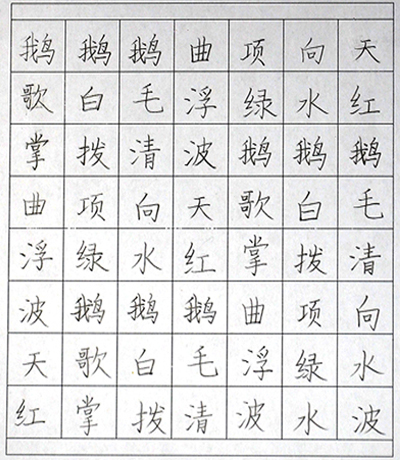 鹅鹅鹅曲项向天
歌白毛浮绿水红
掌拨清波鹅鹅鹅
曲项向天歌白毛
浮绿水红掌拨清
波鹅鹅鹅曲项向
天歌白毛浮绿水
红掌拨清波水波